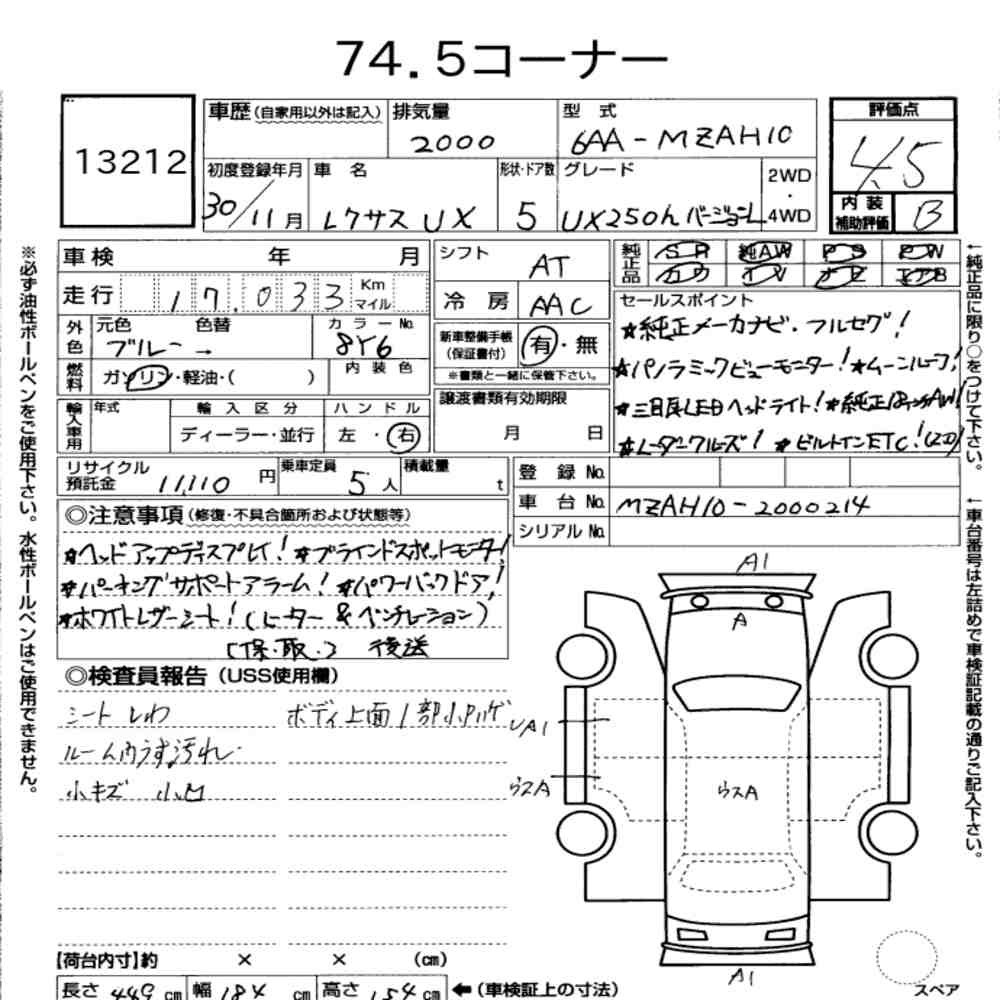 74.5コーナー
13212
車歴 (自家用以外は記入) 排気量 2000 型式 6AA-MZAH10
評価点 4.5
初度登録年月 30/11月 車名 レクサス UX 形状・ドア数 5 グレード UX250h バージョンL 2WD・4WD
内装補助評価 B
車検 年 月
シフト AT
純正品 SR 純AW PS PW
カワ TV ナビ エアB
走行 17,033 Km マイル
冷房 AAC
セールスポイント
外色 元色 ブルー → 色替 カラーNo. 8Y6
新車整備手帳(保証書付) 有・無
※書類と一緒に保管下さい。
★純正メーカナビ・フルセグ!
★パノラミックビューモニター!★ムーンルーフ!
燃料 ガソリン・軽油・( ) 内装色
譲渡書類有効期限 月 日
★三目LEDヘッドライト!★純正18インチAW!
★レーダークルーズ! ★ビルトインETC!(2.0)
輸入車用 年式 輸入区分 ハンドル
ディーラー・並行 左・右
リサイクル預託金 11,110円 乗車定員 5人 積載量 t
登録No.
車台No. MZAH10-2000214
シリアルNo.
◎注意事項(修復・不具合箇所および状態等)
★ヘッドアップディスプレイ!★ブラインドスポットモニター!
★パーキングサポートアラーム!★パワーバックドア!
★ホワイトレザーシート!(ヒーター&ベンチレーション)
[保・取・] 後送
◎検査員報告(USS使用欄)
シートしわ ボディ上面1部小ハゲ
ルーム内うす汚れ
小キズ 小凹
A1
A
A1
ウスA
ウスA
A1
スペア
【荷台内寸】約 × × (cm)
長さ 449 cm 幅 184 cm 高さ 154 cm ←(車検証上の寸法)
※必ず油性ボールペンをご使用下さい。水性ボールペンはご使用できません。
←純正品に限り○をつけて下さい。
←車台番号は左詰めで車検証記載の通りご記入下さい。